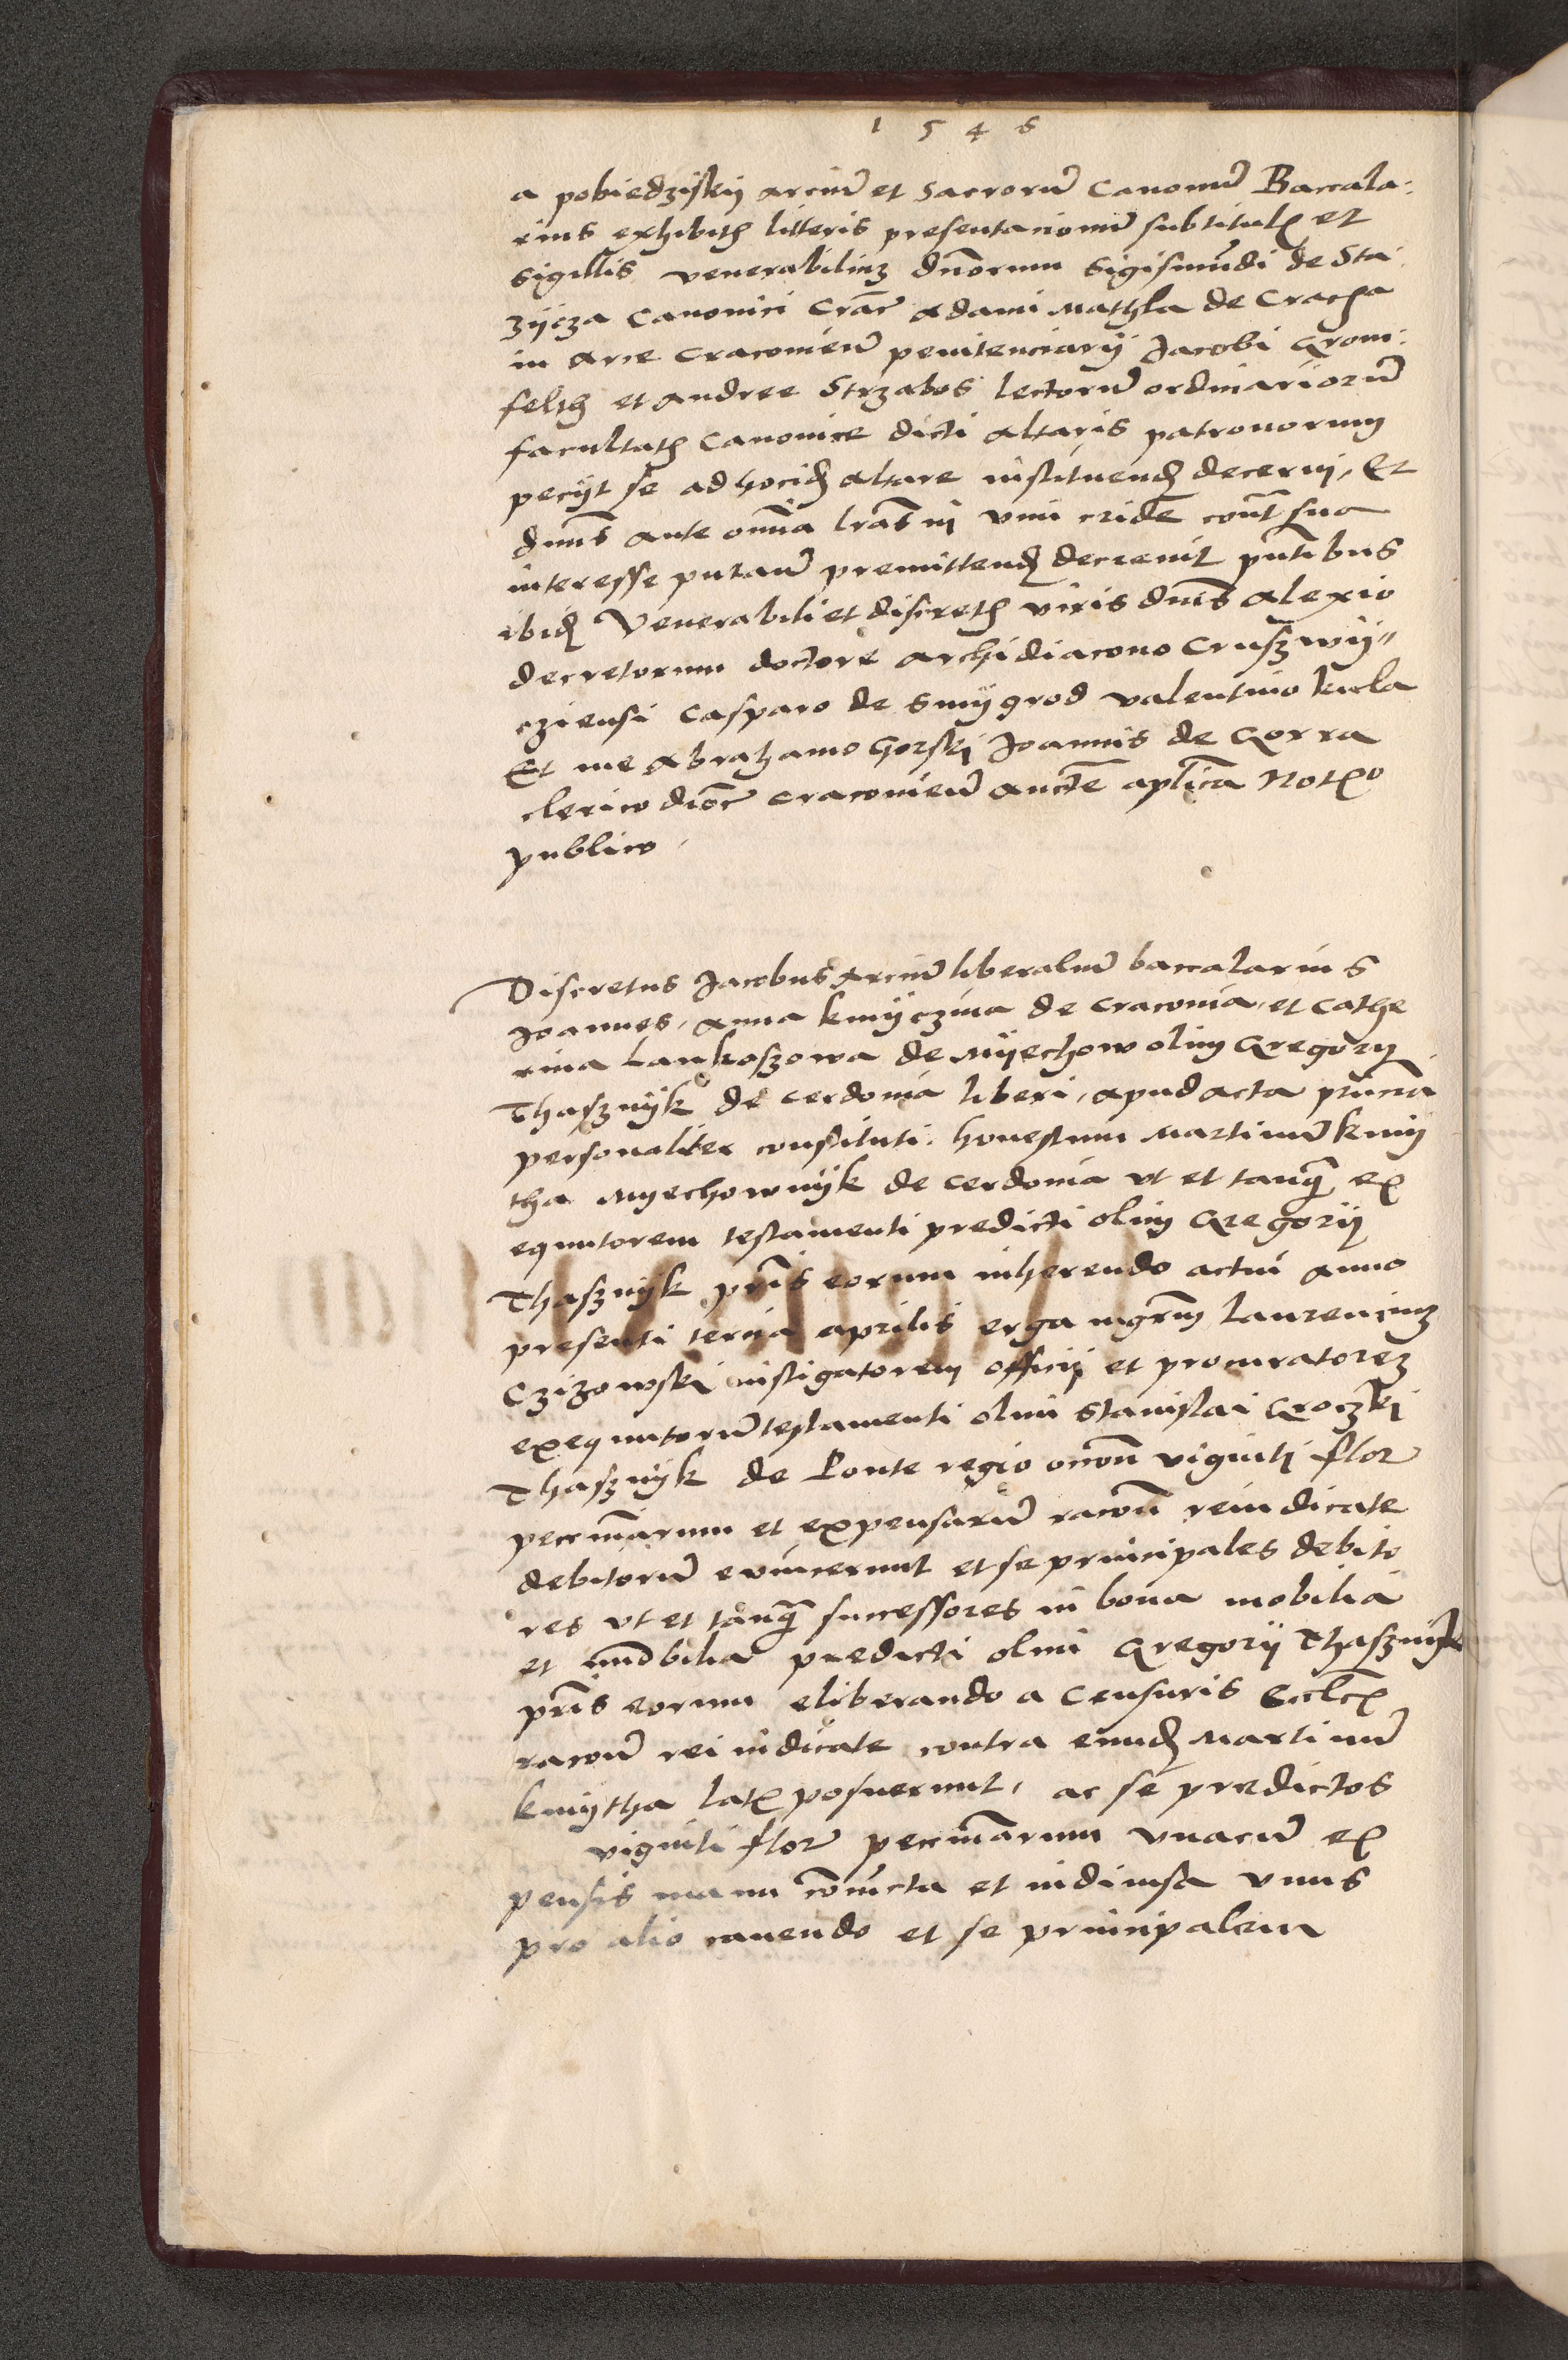 1 5 4 6
a pobiedziskij arciu͂ et sacroru͂ Canonu͂ Baccala:
rius exhibitꝭ litteris presentacionu͂ subtitulꝭ et
sigillis venerabiliuʒ dnorum Sigismu͂di de Sta
zijcza Canonici Crac͂ Adami Mathla de
in arce Cracouien͂ penitenciarij Jacobi Grom:
felth et Andree Strzabos lectoru͂ ordinarioru͂
facultatꝭ Canonice dicti altaris patronorum
pecijt se ad altare instituend decerni, Et
dnus ante omnia l͂ras in vim cride͂ con͂t sua
interesse putan͂ premittend decreuit pn͂tibus
ibid Venerabili et discretꝭ viris dnis Alexio
decretorum doctore archidiacono Cruszwij"
cziensi Casparo de Smijgrod Valentino kucla
Et me Abrahamo Gorski Joannis de Gorra
clerico dioc͂ Cracouien͂ aucte͂ aplica͂ Notꝭo
publico.
Discretus Jacobus arciu͂ liberaliu͂ baccalarius
Joannes, Anna kmijczina de Cracouia, et Cathe
rina Lankoszowa de Mijechow olim Gregorij
Thasznijk de Cerdonia liberi, apud acta pn͂cia͂
personaliter constituti. honestum Martinu͂ kmij
tha Mijechownijk de Cerdonia vt et tanq͂ ex
equutorem testamenti predicti olim Gregorij
Thasznijk pr͂is eorum inherendo actui anno
presenti tercia aprilis erga mgr͂m Laurenciuʒ
Czizowski instigatorem officij et procuratoreʒ
exequutoru͂ testamenti olim Stanislai Groczki
Thasznijk de Ponte regio viginti flor͂
peccu͂iarum et expensaru͂ racon͂ rei iudicate
debitoru͂ euincerunt et se principales debito
res vt et tanq͂ successores in bona mobilia
et im͂obilia predicti olim Gregorij Thasznijk
pr͂is eorum eliberando a Censuris Ecclꝭ
racon͂ rei iudicate contra eund Martinu͂
kmijtha latꝭ posuerunt, ac se predictos
viginti flor͂ peccu͂iarum vnacu͂ ex
pensis manu co͂iuncta et indiuisa vnus
pro alio cauendo et se principalem